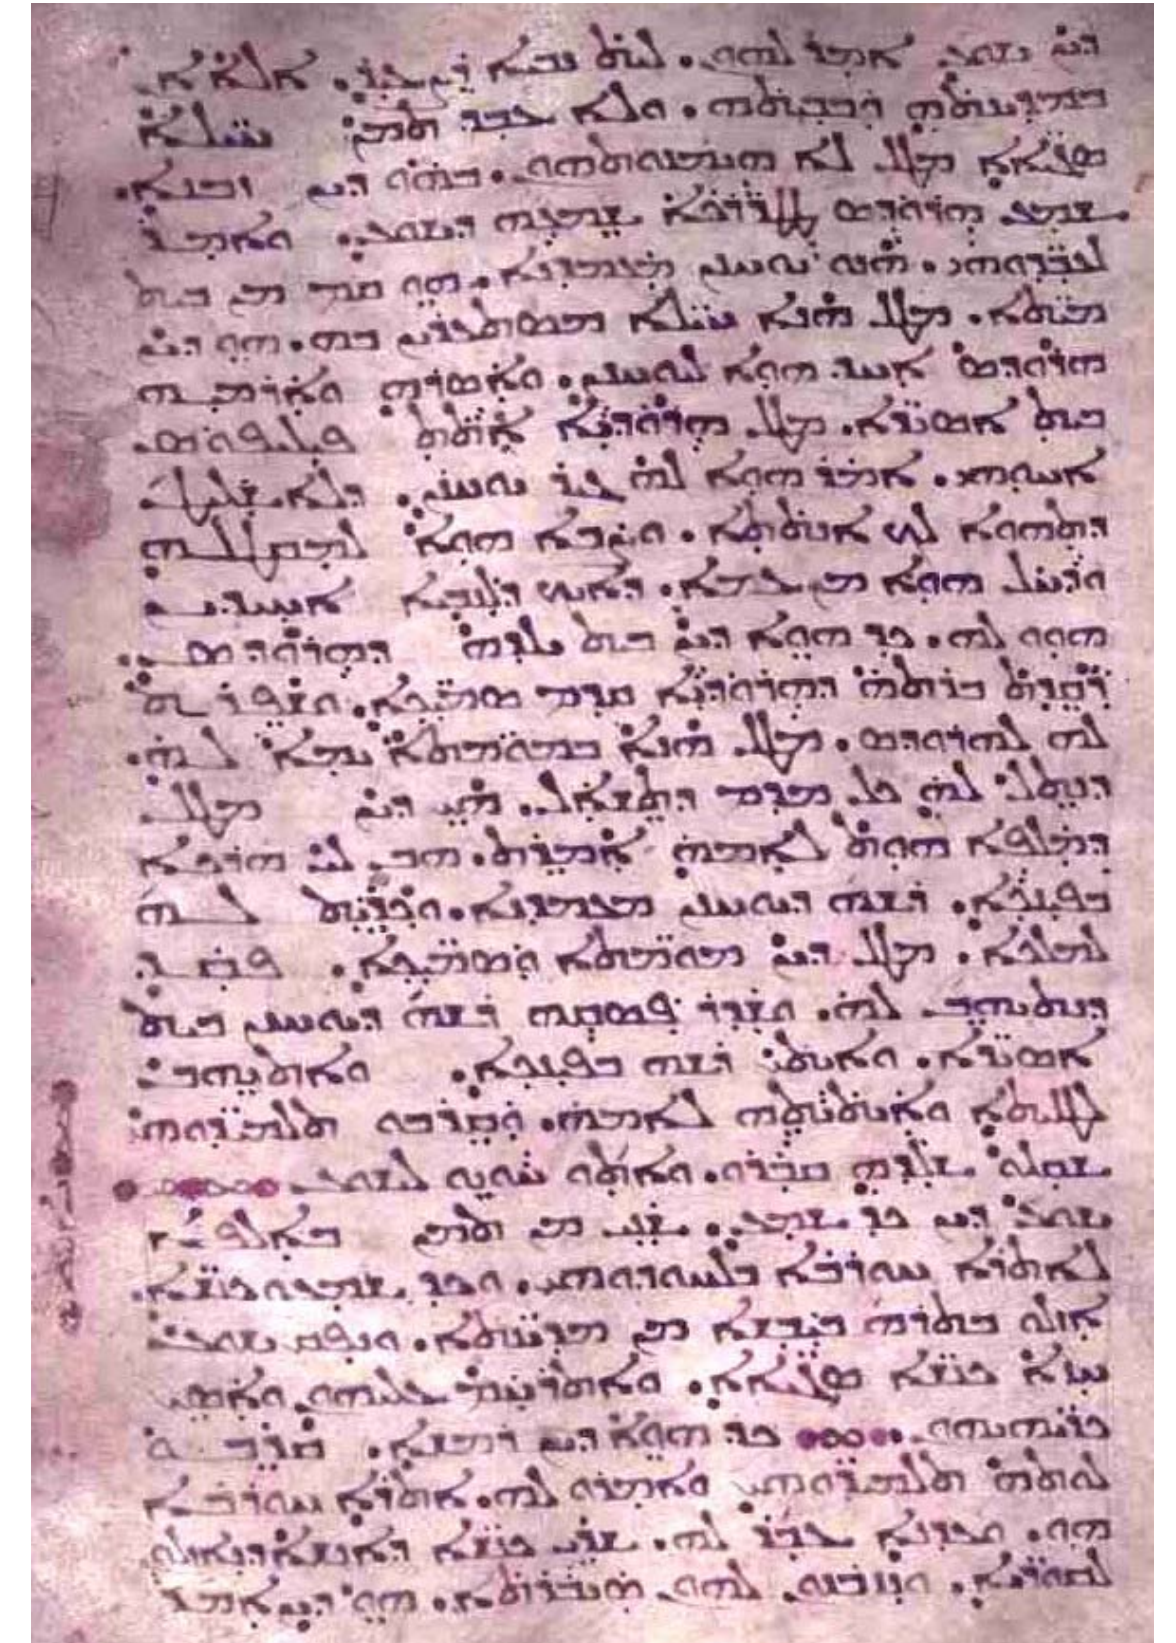 ܕܝܢ ܝܫܘܥ ܐܡܪ ܠܗܘܢ. ܠܝܬ ܢܒܝܐ ܕܨܥܝܪ. ܐܠܐ
ܒܡܕܝܢܬܗ ܘܒܒܝܬܗ. ܘܠܐ ܥܒܕ ܬܡܢ ܚܝܠܐ
ܣܓܝܐܐ ܡܛܠ ܠܐ ܗܝܡܢܘܬܗܘܢ. ܒܗܘ ܕܝܢ ܙܒܢܐ.
ܫܡܥ ܗܪܘܕܣ ܛܛܪܪܟܐ ܫܡܥܗ ܕܝܫܘܥ. ܘܐܡܪ
ܠܥܒܕܘܗܝ. ܗܢܘ ܝܘܚܢܢ ܡܥܡܕܢܐ. ܗܘ ܩܡ ܡܢ ܒܝܬ
ܡܝܬܐ. ܡܛܠ ܗܢܐ ܚܝܠܐ ܡܣܬܥܪܝܢ ܒܗ. ܗܘ ܕܝܢ
ܗܪܘܕܣ ܐܚܕ ܗܘܐ ܠܝܘܚܢܢ. ܘܐܣܪܗ ܘܐܪܡܝܗ
ܒܝܬ ܐܣܝܪܐ. ܡܛܠ ܗܪܘܕܝܐ ܐܢܬܬ ܦܝܠܝܦܘܣ
ܐܚܘܗܝ. ܐܡܪ ܗܘܐ ܠܗ ܓܝܪ ܝܘܚܢܢ. ܕܠܐ ܫܠܝܛ
ܕܬܗܘܐ ܠܟ ܐܢܬܬܐ. ܘܨܒܐ ܗܘܐ ܠܡܩܛܠܗ
ܘܕܚܠ ܗܘܐ ܡܢ ܥܡܐ. ܕܐܝܟ ܕܠܢܒܝܐ ܐܚܝܕܝܢ
ܗܘܘ ܠܗ. ܟܕ ܗܘܐ ܕܝܢ ܒܝܬ ܝܠܕܗ ܕܗܪܘܕܣ.
ܪܩܕܬ ܒܪܬܗ ܕܗܪܘܕܝܐ ܩܕܡ ܣܡܝܟܐ. ܘܫܦܪܬ
ܠܗ ܠܗܪܘܕܣ. ܡܛܠ ܗܢܐ ܒܡܘܡܬܐ ܝܡܐ ܠܗ.
ܕܢܬܠ ܠܗ ܟܠ ܡܕܡ ܕܬܫܐܠ. ܗܝ ܕܝܢ ܡܛܠ
ܕܡܠܦܐ ܗܘܬ ܠܐܡܗ ܐܡܪܬ. ܗܒ ܠܝ ܗܪܟܐ
ܒܦܝܢܟܐ. ܪܫܗ ܕܝܘܚܢܢ ܡܥܡܕܢܐ. ܘܟܪܝܬ ܠܗ
ܠܡܠܟܐ. ܡܛܠ ܕܝܢ ܡܘܡܬܐ ܘܣܡܝܟܐ. ܦܩܕ
ܕܢܬܝܗܒ ܠܗ. ܘܫܕܪ ܦܣܩܗ ܪܫܗ ܕܝܘܚܢܢ ܒܝܬ
ܐܣܝܪܐ. ܘܐܝܬܝ ܪܫܗ ܒܦܝܢܟܐ. ܘܐܬܝܗܒ
ܠܛܠܝܬܐ ܘܐܝܬܝܬܗ ܠܐܡܗ. ܘܩܪܒܘ ܬܠܡܝܕܘܗܝ
ܫܩܠܘ ܫܠܕܗ ܩܒܪܘ. ܘܐܬܘ ܚܘܝܘ ܠܝܫܘܥ
ܝܫܘܥ ܕܝܢ ܟܕ ܫܡܥ. ܫܢܝ ܡܢ ܬܡܢ ܒܐܠܦܐ
ܠܐܬܪܐ ܚܘܪܒܐ ܒܠܚܘܕܘܗܝ. ܘܟܕ ܫܡܥܘ ܟܢܫܐ.
ܐܙܠܘ ܒܬܪܗ ܒܝܒܫܐ ܡܢ ܡܕܝܢܬܐ. ܘܢܦܩ ܝܫܘܥ
ܚܙܐ ܟܢܫܐ ܣܓܝܐܐ. ܘܐܬܪܚܡ ܥܠܝܗܘܢ ܘܐܣܝ
ܟܪܝܗܝܗܘܢ. ܟܕ ܗܘܐ ܕܝܢ ܪܡܫܐ. ܩܪܒܘ
ܠܘܬܗ ܬܠܡܝܕܘܗܝ ܘܐܡܪܘ ܠܗ. ܐܬܪܐ ܚܘܪܒܐ
ܗܘ. ܘܥܕܢܐ ܥܒܪ ܠܗ. ܫܪܝ ܟܢܫܐ ܕܐܢܫܐ ܕܢܐܙܠܘܢ
ܠܩܘܪܝܐ. ܘܢܙܒܢܘܢ ܠܗܘܢ ܣܝܒܪܬܐ. ܗܘ ܕܝܢ ܐܡܪ